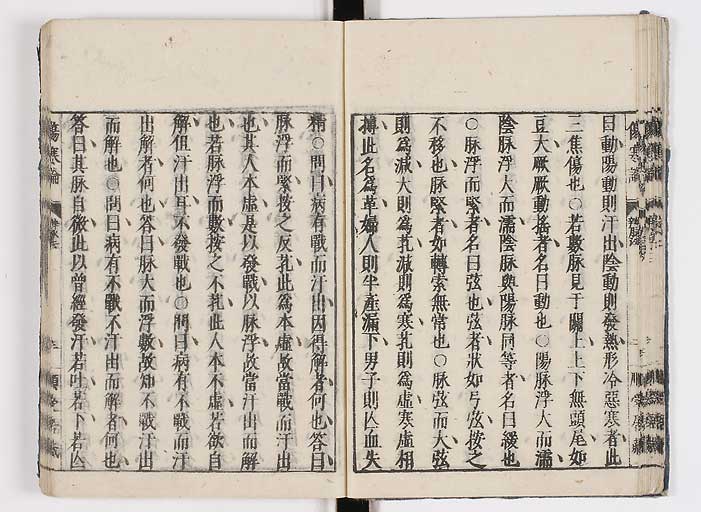 曰動陽動則汗出陰動則發熱形冷惡寒者此
三焦傷也○若數脉見于關上上下無頭尾如
豆大厥厥動搖者名曰動也○陽脉浮大而濡
陰脉浮大而濡陰脉與陽脉同等者名曰緩也
○脉浮而緊者名曰弦也弦者狀如弓弦按之
不移也脉緊者如轉索無常也○脉弦而大弦
則為減大則為芤減則為寒芤則為虛寒虛相
搏此名為革婦人則半產漏下男子則亡血失
精○問曰病有戰而汗出因得解者何也答曰
脉浮而緊按之反芤此為本虛故當戰而汗出
也其人本虛是以發戰以脉浮故當汗出而解
也若脉浮而數按之不芤此人本不虛若欲自
解但汗出耳不發戰也○問曰病有不戰而汗
出解者何也答曰脉大而浮數故知不戰汗出
而解也○問曰病有不戰不汗出而解者何也
答曰其脉自微此以曾經發汗若吐若下若亡
傷寒論